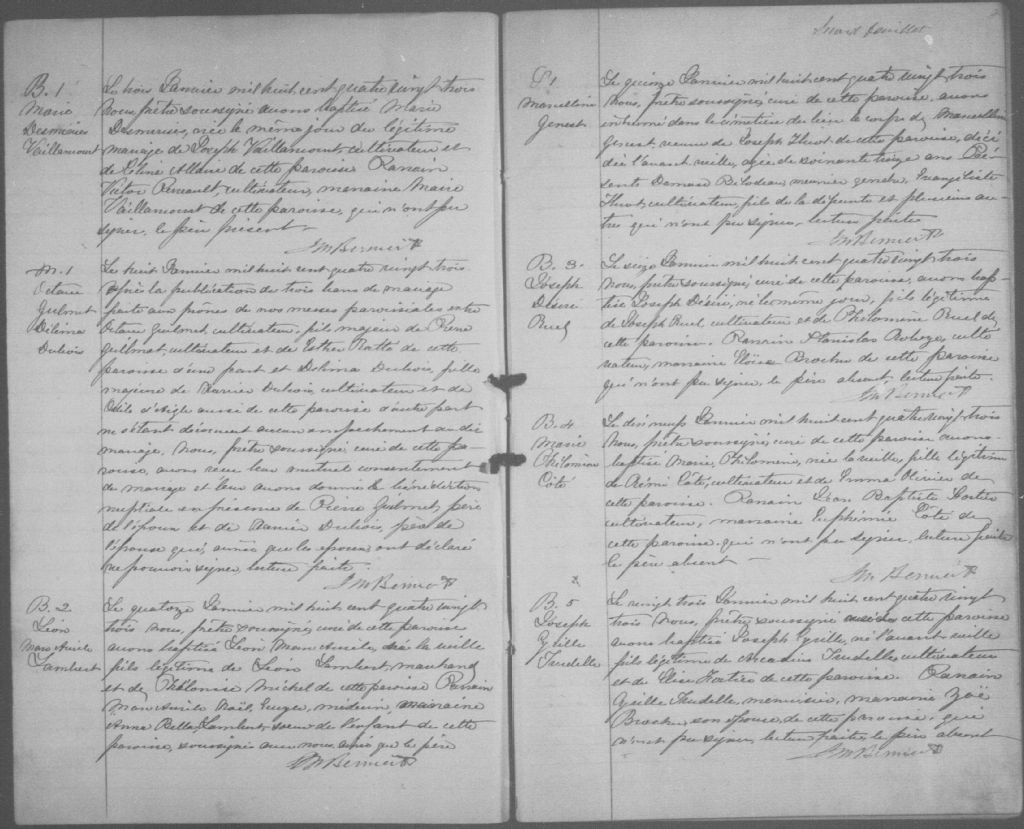 B. 1
Marie
Desmeises
Vaillancourt
Le trois Janvier mil huit cent quatre vingt trois
nous, prêtre soussigné avons baptisé Marie
Desmeises, née le même jour du légitime
mariage de Joseph Vaillancourt cultivateur et
de Céline Allaire de cette paroisse Parrain
Victor cultivateur, marraine Marie
Vaillancourt de cette paroisse, qui n'ont pu
signer, le père présent.
J M Bernier Ptr
M. 1
Octave
Guilmet
Délima
Dubois
Le huit Janvier mil huit cent quatre vingt trois
après la publication de trois bans de mariage
faite aux prônes de nos messes paroissiales entre
Octave Guilmet, cultivateur, fils majeur de Pierre
Guilmet, cultivateur et de Esther Ratté de cette
paroisse d'une part et Délima Dubois, fille
majeure de Damien Dubois cultivateur et de
Odile d'Aigle aussi de cette paroisse d'autre part
ne s'étant découvert aucun empêchement au dit
mariage, Nous, prêtre soussigné, curé de cette pa-
roisse, avons reçu leur mutuel consentement
de mariage et leur avons donné la bénédiction
nuptiale en présence de Pierre Guilmet, père
de l'époux et de Damien Dubois, père de
l'épouse qui, ainsi que les époux, ont déclaré
ne pouvoir signer, lecture faite.
J M Bernier Ptr
B. 2
Léon
Marc Aurèle
Lambert
Le quatorze Janvier mil huit cent quatre vingt
trois nous, prêtre soussigné, curé de cette paroisse
avons baptisé Léon Marc Aurèle, né la veille
fils légitime de Léon Lambert marchand
et de Philonise Michel de cette paroisse Parrain
Marc Aurèle médecin, marraine
Anna Bella Lambert, soeur de l'enfant de cette
paroisse, soussignés avec nous, ainsi que le père
J M Bernier Ptr
Second feuillet
S. 1
Marcelline
Genest
Le quinze Janvier mil huit cent quatre vingt trois
Nous, prêtre soussigné, curé de cette paroisse, avons
inhumé dans le cimetière du lieu le corps de Marcelline
Genest, veuve de Joseph Huot de cette paroisse, décé-
dée l'avant veille, agée de soixante treize ans Pré-
sents Damase Bilodeau, meunier gendre, Evangéliste
Huot, cultivateur, fils de la défunte et plusieurs au-
tres qui n'ont pu signer, lecture faite
J M Bernier Ptr
B. 3
Joseph
Désiré
Ruel
Le seize Janvier mil huit cent quatre vingt trois
Nous, prêtre soussigné, curé de cette paroisse, avons bap
tisé Joseph Désiré, né le même jour, fils légitime
de Joseph Ruel cultivateur et de Philomène Ruel de
cette paroisse. Parrain Stanislas culti
vateur, marraine Eloïse Brochu de cette paroisse
qui n'ont pu signer, le père absent. lecture faite.
J M Bernier Ptr
B. 4
Marie
Philomène
Côté
Le dix neuf Janvier mil huit cent quatre vingt trois
Nous, prêtre soussigné, curé de cette paroisse avons
baptisé Marie, Philomène, née la veille, fille légitime
de Rémi Côté, cultivateur et de Emma Olivier de
cette paroisse. Parrain Jean Baptiste Fortier
cultivateur, marraine Euphémie Côté de
cette paroisse, qui n'ont pu signer, lecture faite
le père absent
J M Bernier Ptr
B. 5
Joseph
Gzille
Trudelle
Le vingt trois Janvier mil huit cent quatre vingt
trois Nous, prêtre soussigné curé de cette paroisse
avons baptisé Joseph Gzille, né l'avant veille
fils légitime de Arcadius Trudelle, cultivateur
et de Elise Fortier de cette paroisse. Parrain
Gzille Trudelle, menuisier, marraine Zoé
Brochu, son épouse, de cette paroisse, qui
n'ont pu signer, lecture faite, le père absent
J M Bernier Ptr